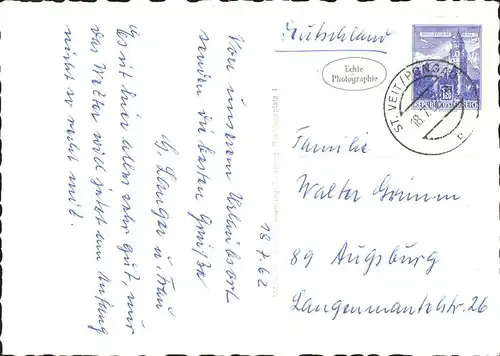 Deutschland
Echte
Photographie
ST. VEIT/PONGAU
18.7.
Familie
Walter Grimm
89 Augsburg
Langenmantelstr. 26
18.7.62
Von unserem Urlaubsort
senden die besten Grüße
Fg. Langer u. Frau
Es ist hier alles sehr gut, nur
das Wetter will jetzt am Anfang
nicht so recht mit.